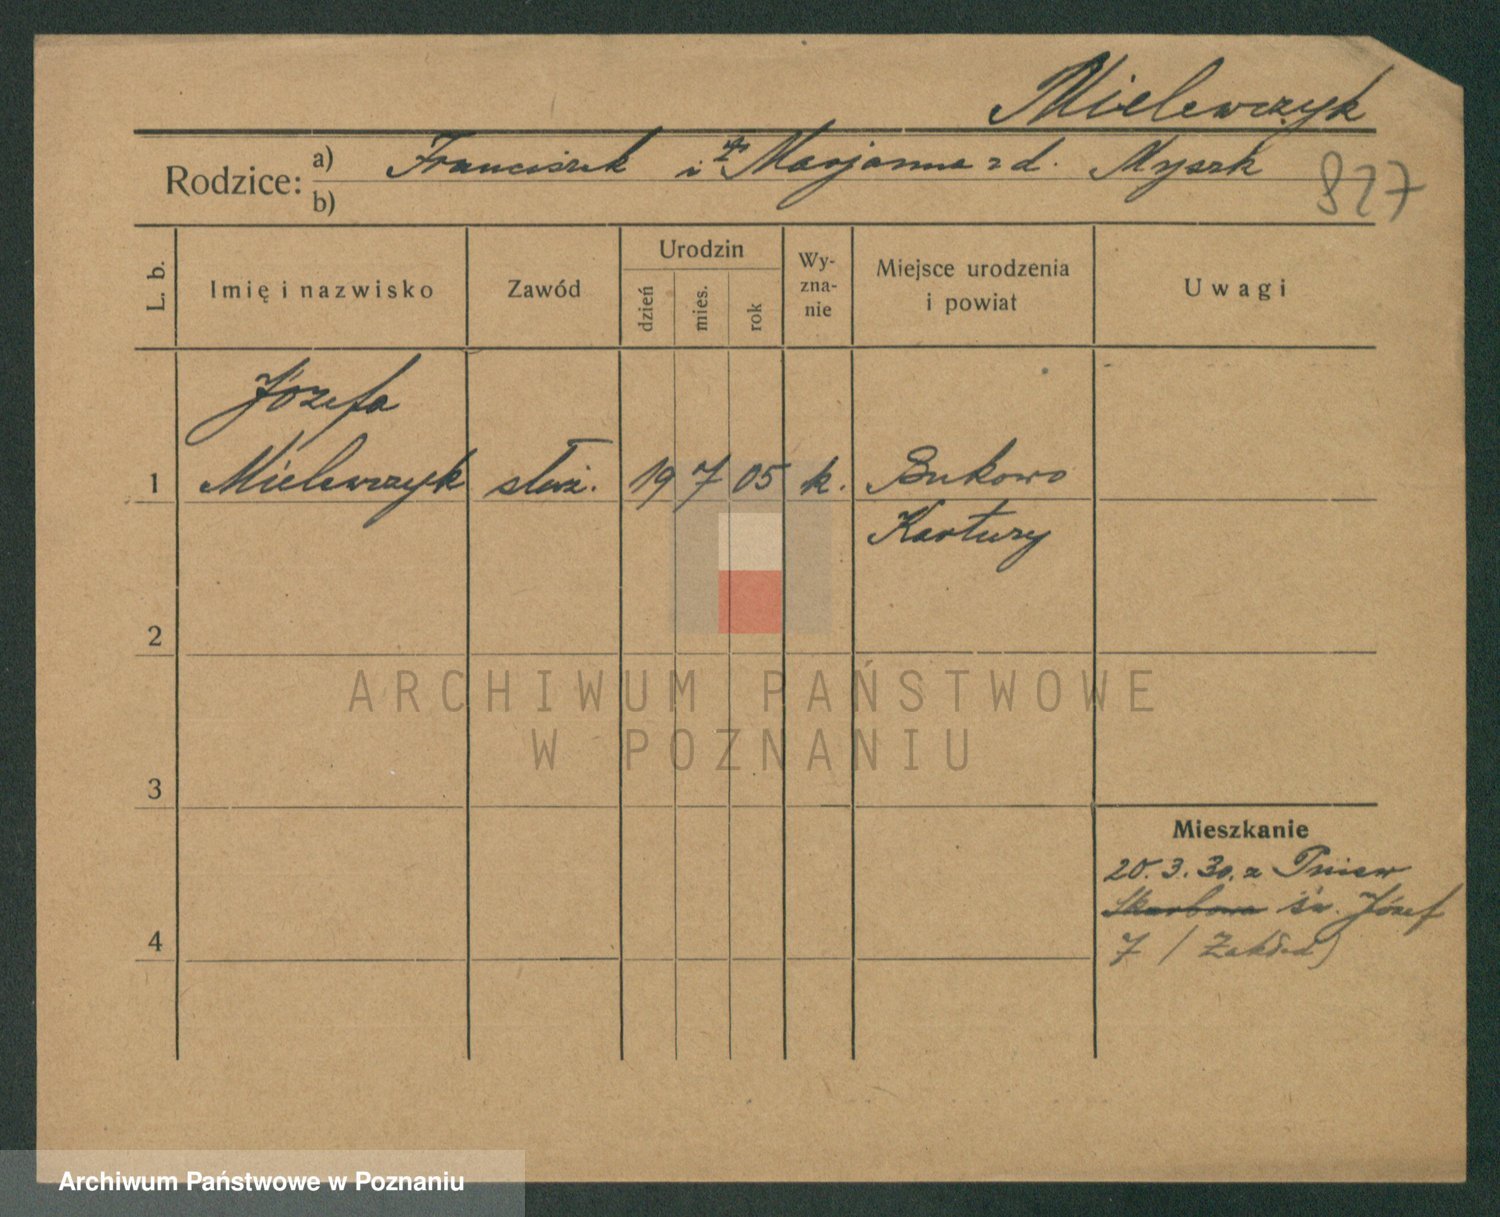 Mielewczyk
Rodzice: a) Franciszek i † Marjanna z d. Myszk
b)
827
L. b. Imię i nazwisko Zawód Urodzin dzień mies. rok Wy-zna-nie Miejsce urodzenia i powiat Uwagi
Józefa
1 Mielewczyk służ. 19 7 05 k. Sukowo
Kartuzy
2
ARCHIWUM PAŃSTWOWE
W POZNANIU
3
Mieszkanie
20. 3. 30. z Pniew
Skarbowa św. Józef
4 7 / Zakład)
Archiwum Państwowe w Poznaniu